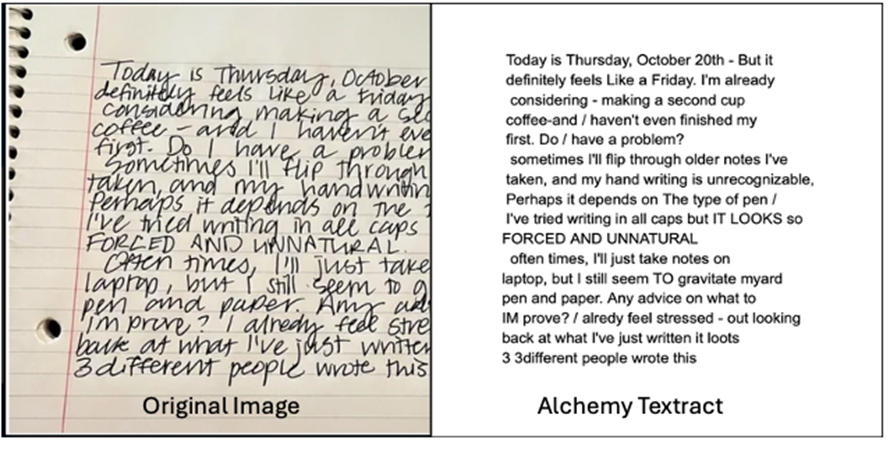 Today is Thursday, October
definitely feels like a friday
considering making a sec
coffee - and I haven't eve
first. Do I have a problem
Sometimes I'll flip through
taken, and my handwritin
Perhaps it depends on the
I've tried writing in all caps
FORCED AND UNNATURAL.
Often times, I'll just take
laptop, but I still seem to g
pen and paper. Any ad
improve? I alredy feel stre
back at what I've just written
3 different people wrote this
Original Image
Today is Thursday, October 20th - But it
definitely feels Like a Friday. I'm already
considering - making a second cup
coffee-and / haven't even finished my
first. Do / have a problem?
sometimes I'll flip through older notes I've
taken, and my hand writing is unrecognizable,
Perhaps it depends on The type of pen /
I've tried writing in all caps but IT LOOKS so
FORCED AND UNNATURAL
often times, I'll just take notes on
laptop, but I still seem TO gravitate myard
pen and paper. Any advice on what to
IM prove? / alredy feel stressed - out looking
back at what I've just written it loots
3 3different people wrote this
Alchemy Textract